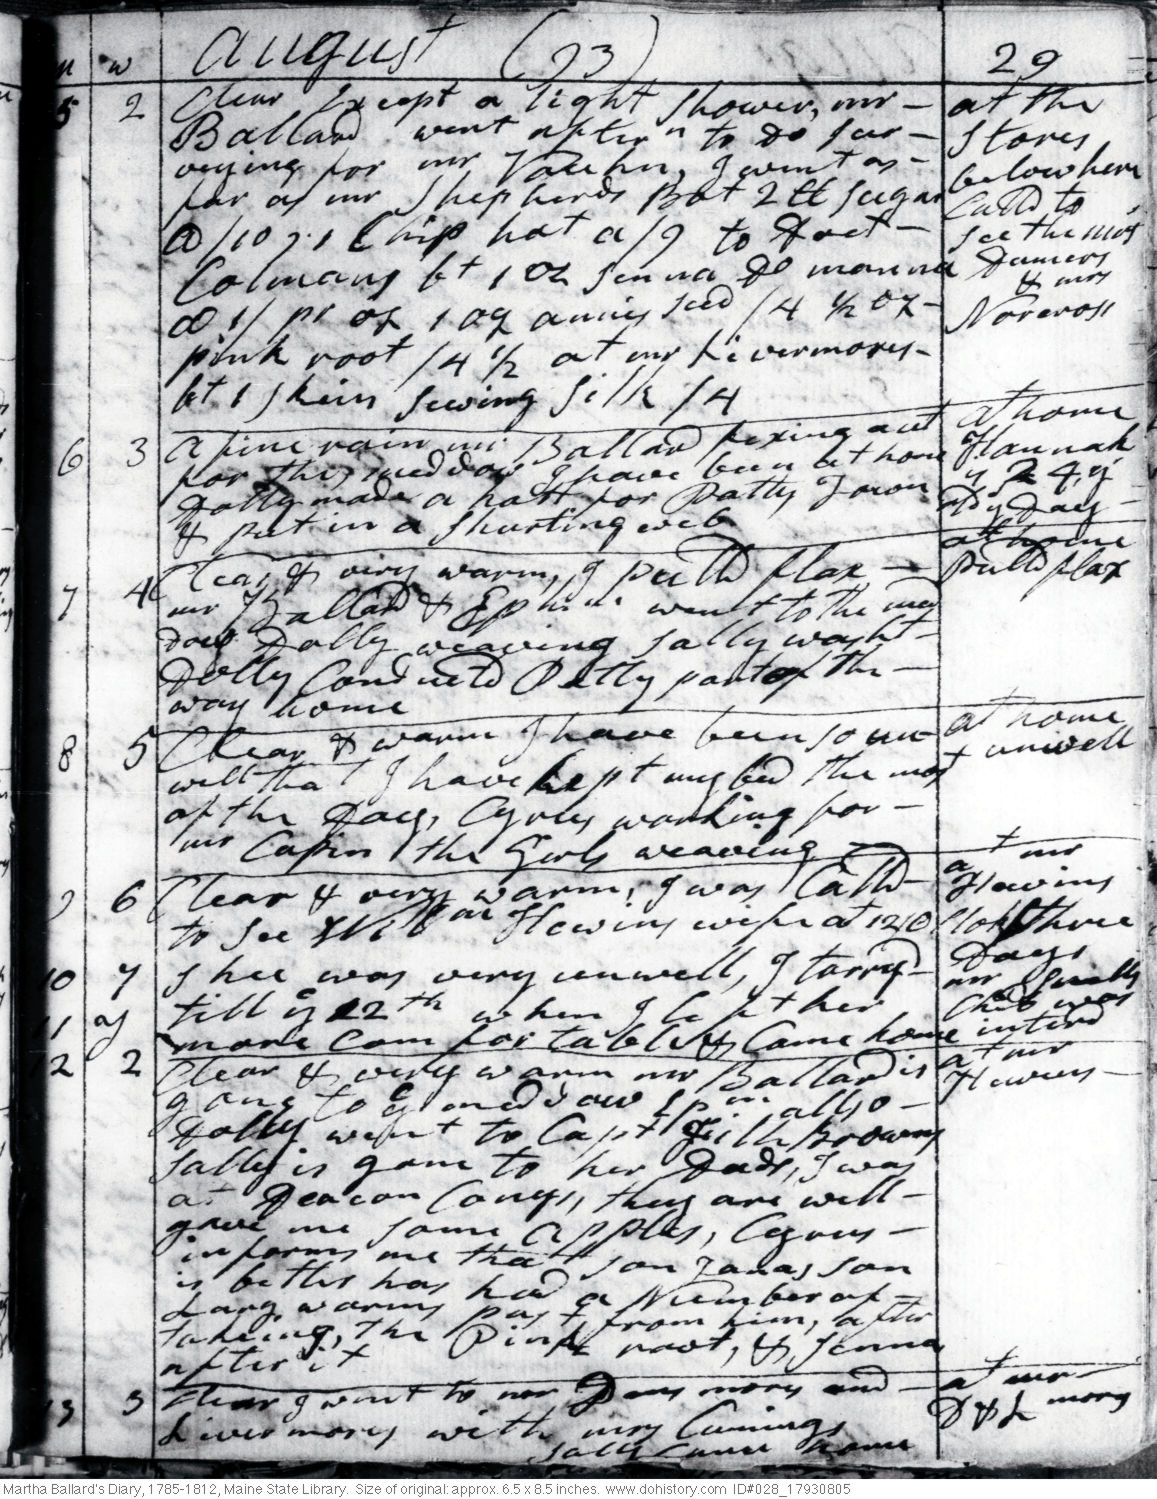 m w august (93) 29
5 2 Clear Except a light Shower, mr
Ballard went after n to do Sur-
veying for mr Vauhn, I went as
far as mr Shepherds Bot 2 lb Sugar
@ /10 1 Chip hat a/9 to Doct
Colmans bt 1 oz Senna Do manna
@ 1/ pr oz 1 oz annis Seed /4 1/2 oz
pink root /4 1/2 at mr Livermores
bt 1 skein Sewing Silk /4
at the
Stores
below here
Calld to
See the mrs
Dumers
& mrs
Norcross
6 3 a fine rain mr Ballard fixing out
for the meddow I have been at home
Dolly made a hatt for Patty Town
& put in a Shurting web
at home
Hannah
is 24 y
Dy Day
7 4 Clear & very warm, I pulld flax
mr Ballard & Ephm went to the med
dow Dolly weaving Sally washt
Dolly Conducted Patty part of the
way home
at home
Pulld flax
8 5 Clear & warm I have been so un-
well that I have kept my bed the most
of the Day, Cyrus working for
mr Capin the Girls weaving
at home
& unwell
9 6 Clear & very warm, I was Calld
to See William Hewins wife at 12
10 7 Shee was very unwell, I tarried
11 till ye 12th when I left her
more comfortable & Came home
at mr
Hewins
three
Days
mr
Child was
interd
12 2 Clear & very warm mr Ballard is
gone to ye meddow Epm allso
Dolly went to Capt Browns
Sally is gone to her Dads, I was
at Deacon Conys, they are well
gave me some apples, Cyrus
informs me that son Jonas son
is better has had a Number of
Larg warms past from him, after
taking, the Pink root, & Senna
after it
at mr
Hewins
13 3 Clear I went to mr Densmores and
Livermores with mrs Cumings
Sally Came home
at mr
D & L mores
Martha Ballard's Diary, 1785-1812, Maine State Library. Size of original: approx. 6.5 x 8.5 inches. www.dohistory.com ID#028_17930805